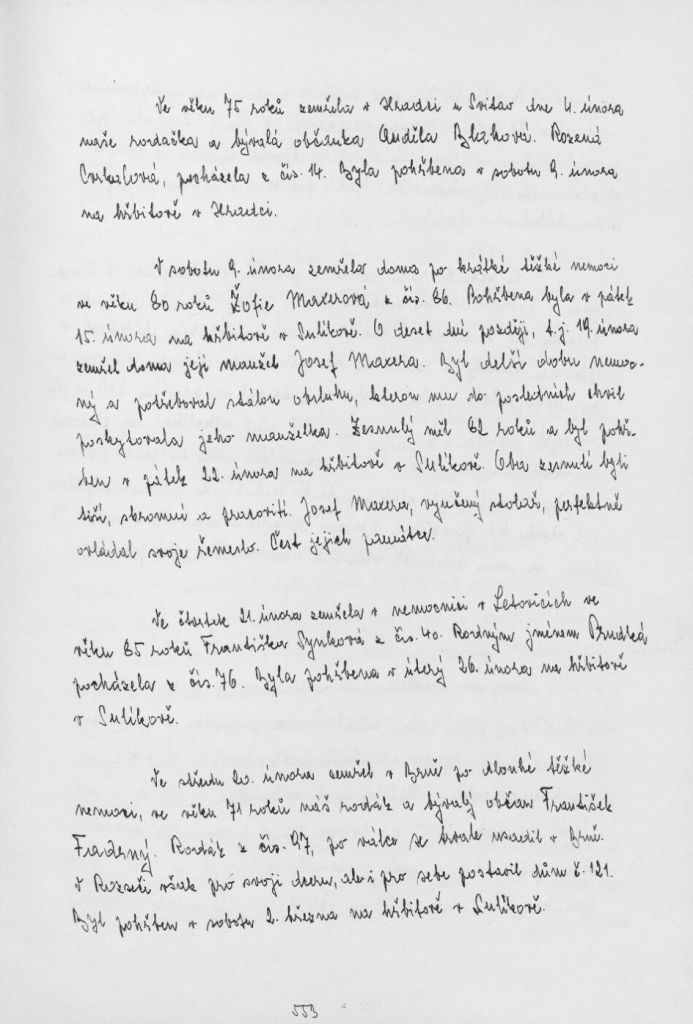 Ve věku 75 roků zemřela v Hradci n Svitav dne 4. února
naše rodačka a bývalá občanka Anděla Blahová. Rozená
pocházela z čís. 14. Byla pohřbena v sobotu 9. února
na hřbitově v Hradci.
V sobotu 9. února zemřela doma po krátké těžké nemoci
ve věku 80 roků Žofie Maxerová z čís. 86. Pohřbena byla v pátek
15. února na hřbitově v Sulíkově. O deset dní později, t.j. 19. února
zemřel doma její manžel Josef Maxera. Byl delší dobu nemoc-
ný a potřeboval stálou obsluhu, kterou mu do posledních chvil
poskytovala jeho manželka. Zesnulý měl 82 roků a byl pohř-
ben v pátek 22. února na hřbitově v Sulíkově. Oba zesnulí byli
tiší, skromní a pracovití. Josef Maxera, vyučený stolař, perfektně
ovládal svoje řemeslo. Čest jejich památce.
Ve čtvrtek 21. února zemřela v nemocnici v Letovicích ve
věku 85 roků Františka Synková z čís. 40. Rodným jménem Prudká
pocházela z čís. 76. Byla pohřbena v úterý 26. února na hřbitově
v Sulíkově.
Ve středu 20. února zemřel v Brně po dlouhé těžké
nemoci, ve věku 71 roků náš rodák a bývalý občan František
Fadrný. Rodák z čís. 97, po válce se trvale usadil v Brně.
V Rozseči však pro svoji dceru, ale i pro sebe postavil dům č. 121.
Byl pohřben v sobotu 2. března na hřbitově v Sulíkově.
553